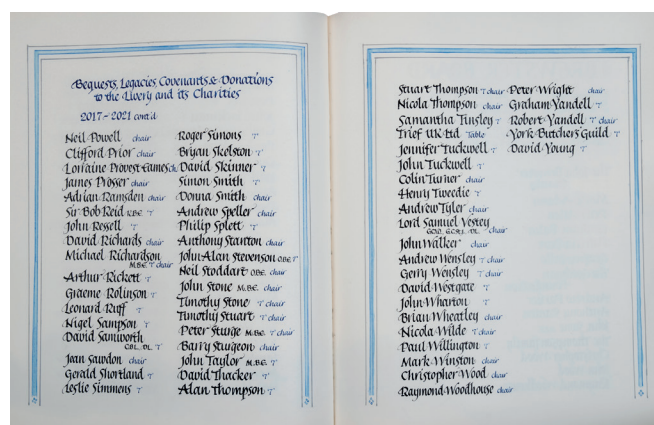 Bequests, Legacies, Covenants & Donations
to the Livery and its Charities
2017 - 2021 cont'd
Neil Powell chair
Clifford Prior chair
Lorraine Provest-Eames ch
James Prosser chair
Adrian Ramsden chair
Sir Bob Reid K.B.E. T
John Ressell T
David Richards chair
Michael Richardson
M.B.E. T chair
Arthur Rickett T
Graeme Rolinson T
Leonard Ruff T
Nigel Sampson T
David Samworth
C.B.E., DL. T
Jean Sawdon chair
Gerald Shortland T
Leslie Simmens T
Roger Simons T
Bryan Skelston T
David Skinner T
Simon Smith T
Donna Smith chair
Andrew Speller chair
Philip Splett T
Anthony Stanton chair
John Alan Stevenson O.B.E. T
Neil Stoddart O.B.E. chair
John Stone M.B.E. chair
Timothy Stone T chair
Timothy Stuart T chair
Peter Sturge M.B.E. T chair
Barry Sturgeon chair
John Taylor M.B.E. T
David Thacker T
Alan Thompson T
Stuart Thompson T chair
Nicola Thompson chair
Samantha Tinsley T
Trief UK Ltd Table
Jennifer Tuckwell T
John Tuckwell T
Colin Turner chair
Henry Tweedie T
Andrew Tyler chair
Lord Samuel Vestey
DL. chair
John Walker chair
Andrew Wensley T chair
Gerry Wensley T chair
David Westgate T
John Wharton T
Brian Wheatley chair
Nicola Wilde T chair
Paul Willington T
Mark Winston chair
Christopher Wood chair
Raymond Woodhouse chair
Peter Wright chair
Graham Yandell T
Robert Yandell T chair
York Butchers Guild T
David Young T